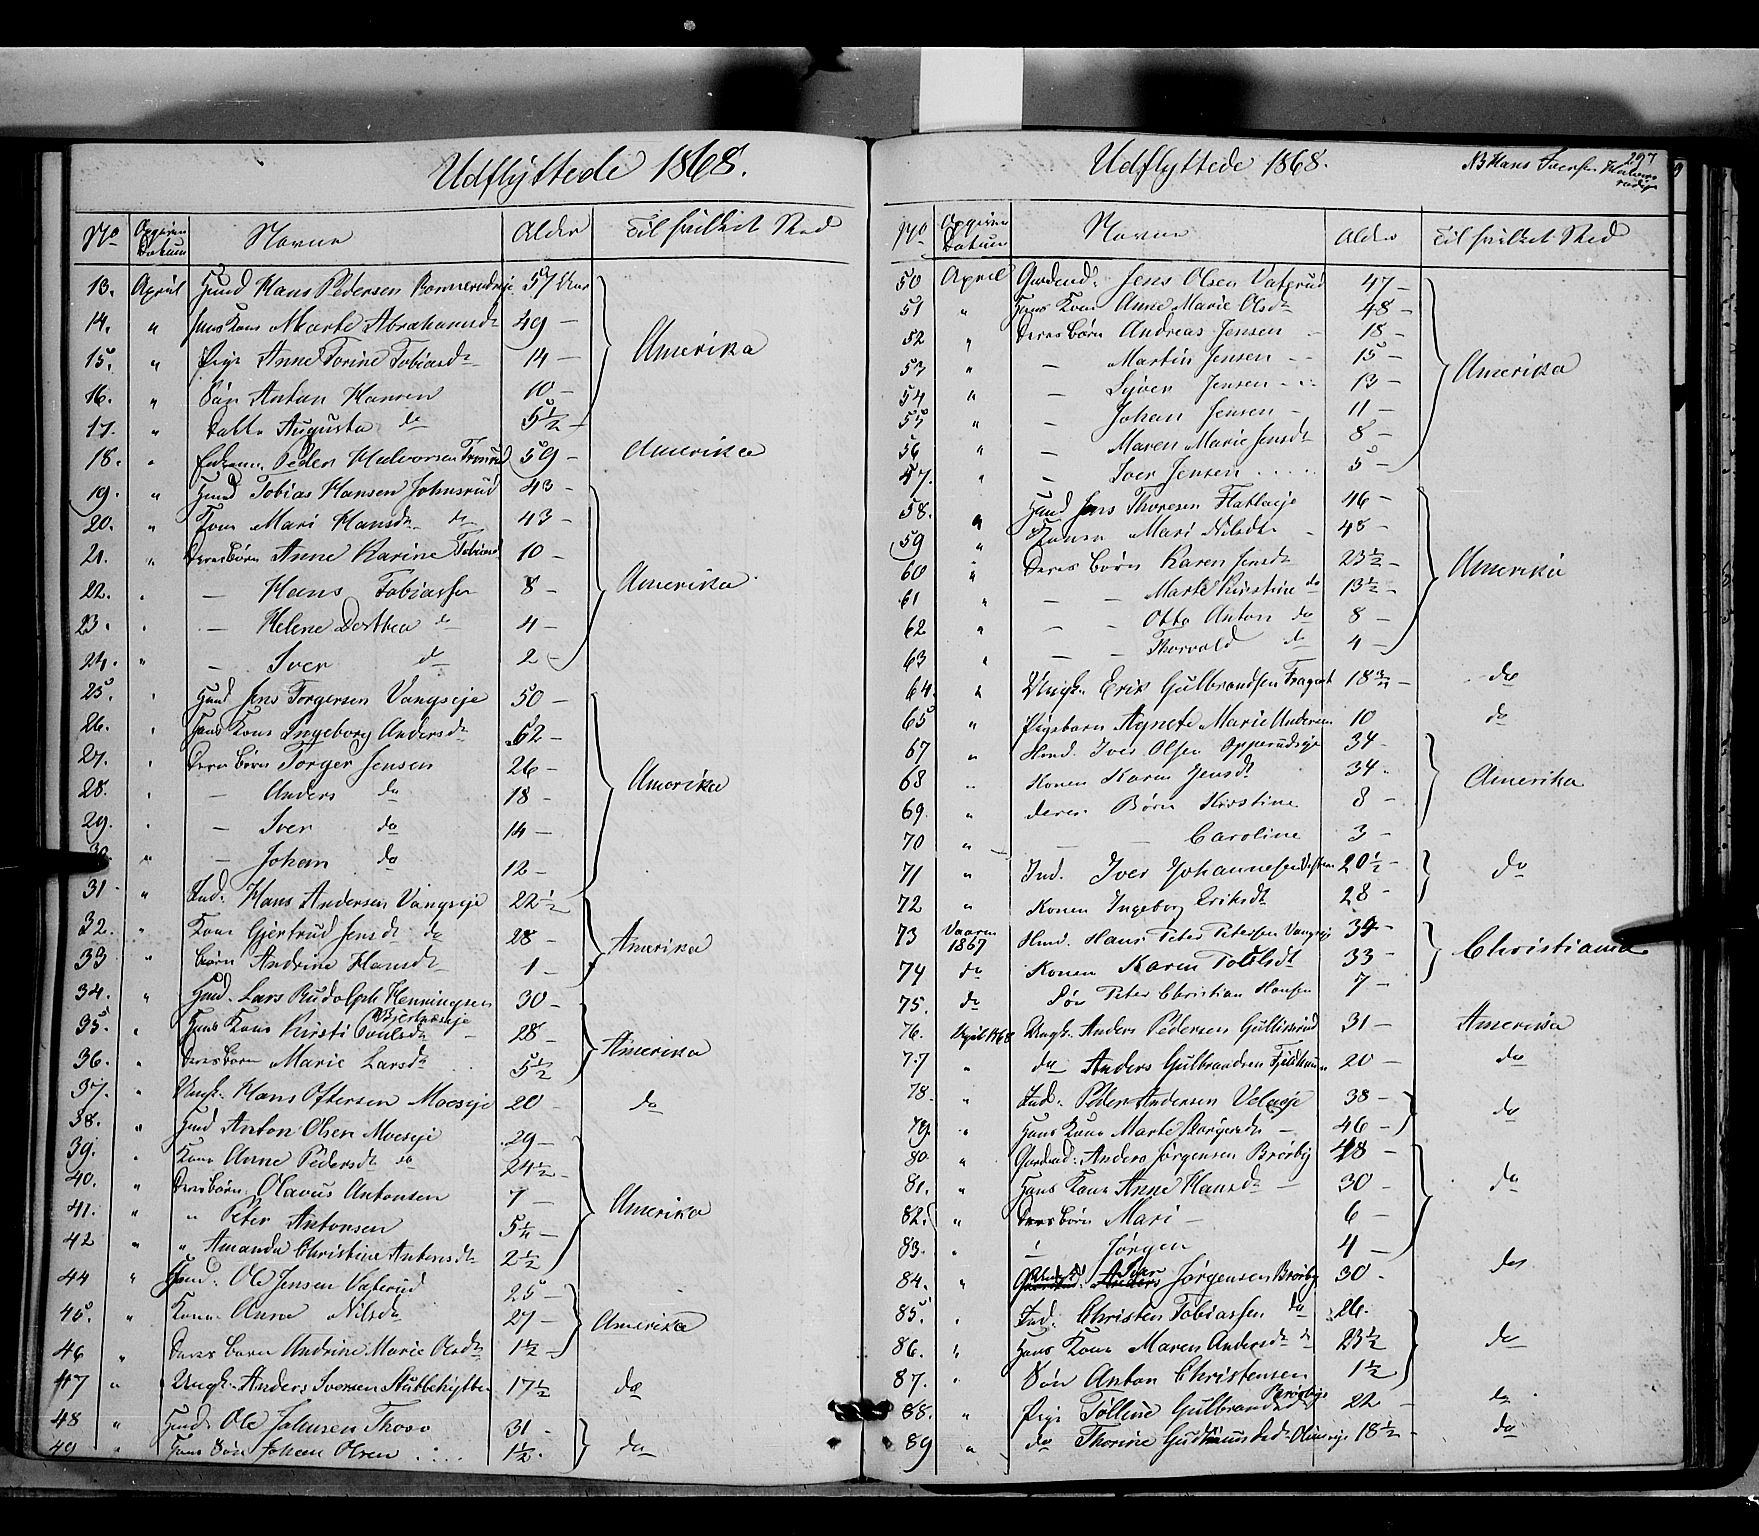 Udflyttede 1868.
No Opgiven Datum Navne Alder Til hvilket Sted
13. April Huusmd Hans Pedersen Bonnerudeje 57 Aar
14. " Hans Kone Marte Abrahamsdr 49 — Amerika
15. " Pige Anne Torine Tobiasdr 14 —
16. " Søn Anton Hansen 10 —
17. " Datter Augusta do 5½ —
18. " Peder Halvorsen 59 — Amerika
19. " Huusmd Tobias Hansen Johnsrud 43 —
20. " Kone Mari Hansdr do 43 —
21. " Deres Børn Anne Karine Tobiasd 10 —
22. " — Hans Tobiassen 8 — Amerika
23. " — Helene Dorthea do 4 —
24. " — Iver do 2 —
25. " Huusmd Jens Torgersen Vangseje 50 —
26. " Hans Kone Ingeborg Andersdr 52 —
27. " Deres Børn Torger Jensen 26 —
28. " — Anders do 18 — Amerika
29. " — Iver do 14 —
30. " — Johan do 12 —
31 " Ind. Hans Andersen Vangseje 22½
32. " Kone Gjertrud Jensdr do 28 — Amerika
33 " Børn Andrine Hansdr 1 —
34. " Huusmd. Lars Rudolph Henningsen 30 —
35. " Hans Kone Kirsti Poulsdr 28 —
36. " Deres Børn Marie Larsdr 5½ Amerika
37. " Ungk. Hans Oftersen Moeseje 20 — do
38. " Huusmd Anton Olsen Moeseje 29 —
39. " Kone Anne Pedersdr do 24½
40. " Deres Børn Olavus Antonsen 7 —
41. " " Peter Antonsen 5¼ Amerika
42 " " Amanda Christine Antonsdr 2½
44 " Huusmd. Ole Jensen Vaterud 25 —
45. " Kone Anne Nilsdr 27 — Amerika
46 " Deres Barn Andrine Marie Olsdr 1½ —
47 " Ungk. Anders Iversen Stubbehytten 17½ do
48 " Huusmd Ole Johnsen Thoso 31 —
49 " Hans Søn Johan Olsen 1½ . do
Udflyttede 1868.
NB Hans 297
No Opgiven Datum Navne Alder Til hvilket Sted
50 April Gaardmd. Jens Olsen Vaterud 47 —
51 " Hans Kone Anne Marie Olsdr 48 —
52 " Deres Børn Andreas Jensen 18 —
53 " — Martin Jensen 15 — Amerika
54 " — Syver Jensen 13 —
55 " — Johan Jensen 11 —
56 " — Maren Marie Jensdr 8 —
57. " — Iver Jensen 5 —
58. " Huusmd Jens Thoresen Flatteeje 46 —
59 " Konen Mari Nilsdr 48 —
60 " Deres Børn Karen Jensdr 23½ — Amerika
61 " — — Marte Kirstine do 13½ —
62 " — — Otto Anton do 8 —
63 " — — Thorvald do 4 —
64. " Ungk. Erik Gulbrandsen 18¾ — do
65 " Pigebarn Agnete Marie Andersen 10 do
67 " Huusmd. Iver Olsen Opperudseje 34 —
68 " Konen Karen Jensdr 34 . Amerika
69. " deres Børn Kirstine 8 —
70 " — — Caroline 3 —
71 " Ind. Iver Johannesen 20½ — do
72 " Konen Ingeborg Eriksdr 28 —
73 Vaaren 1867 Huusmd. Hans Peter Petersen Vangseje 34 — Christiania
74 do Konen Karen 33 —
75. do Søn Peter Christian Hansen 7 —
76. April 1868 Ungk. Anders Pedersen Gullixrud 31 — Amerika
77 " do Anders Gulbrandsen 20 — do
78. " Ind. Peder Andersen Velseje 38 — do
79. " Hans Kone Marte 46 —
80. " Gaardmd. Anders Jørgensen Brørby 48 —
81. " Hans Kone Anne Hansdr 30 — do
82. " Deres Børn Mari — 6 —
83. " " Jørgen 4 —
84. " Ungk. Jørgensen Brørby 30 . do
85. " Ind. Christen Tobiassen do 26.
86. " Hans Kone Maren Andersdr do 23½ do
87. " Søn Anton Christensen 1½
88. " Pige Tolline Gulbrandsd Brørby 22 — do
89 " do Thorine 18½ — do